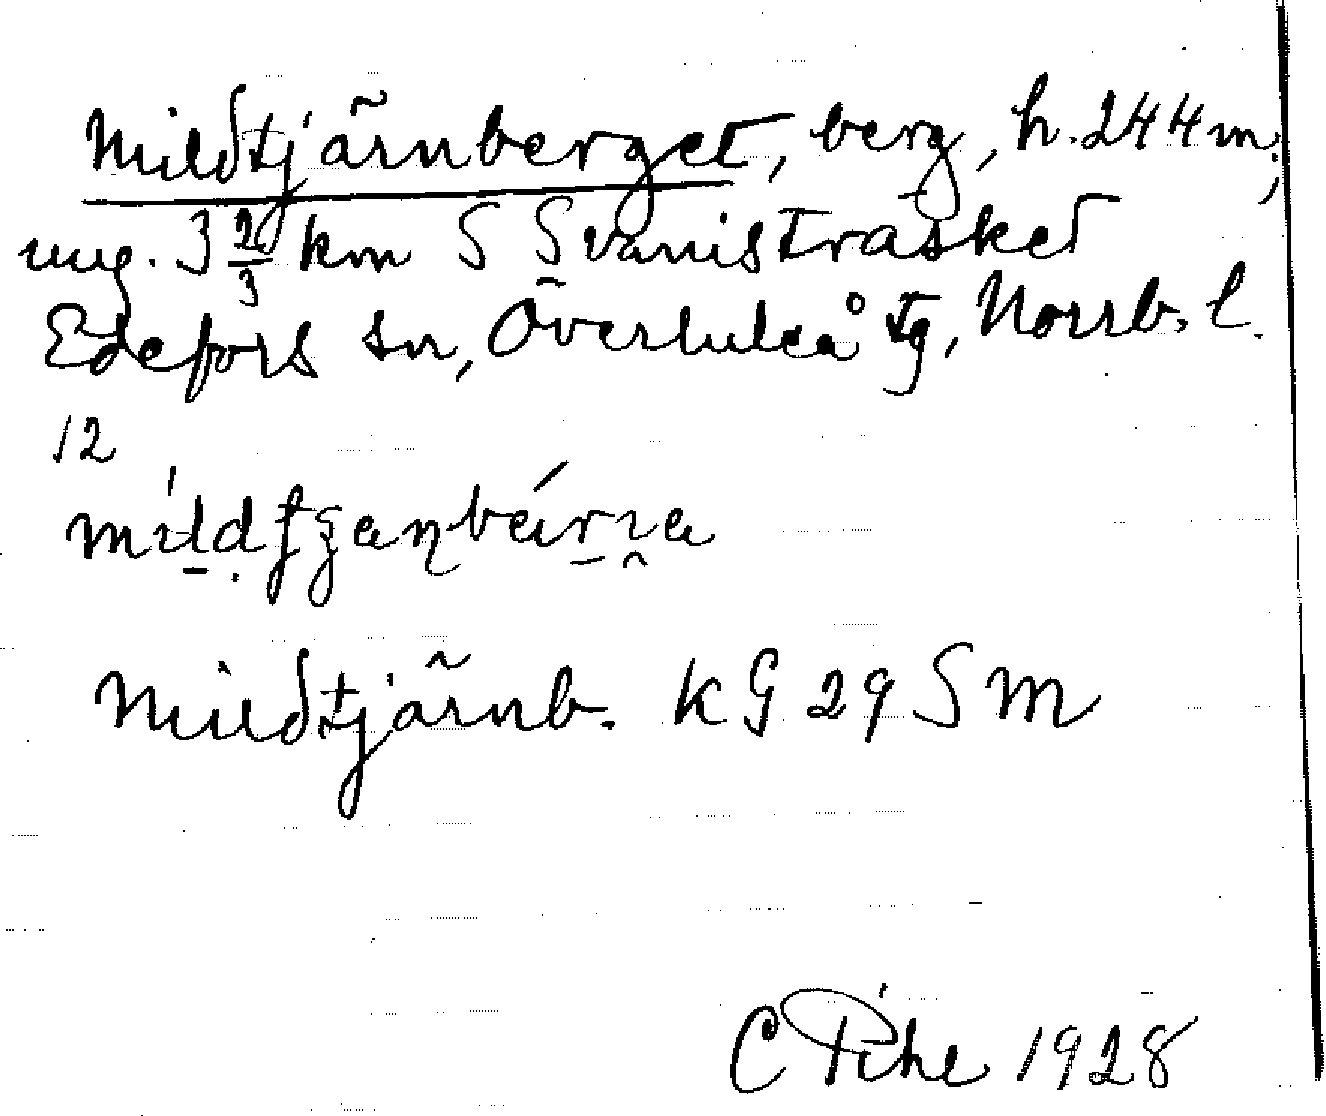 Mildtjärnberget, berg, h. 244 m,
ung. 3 2/3 km S Svanisträsket
Edefors sn, Överluleå tg, Norrb. l.
12
Mildtjärnb. KG 29 S M
C Pihl 1928